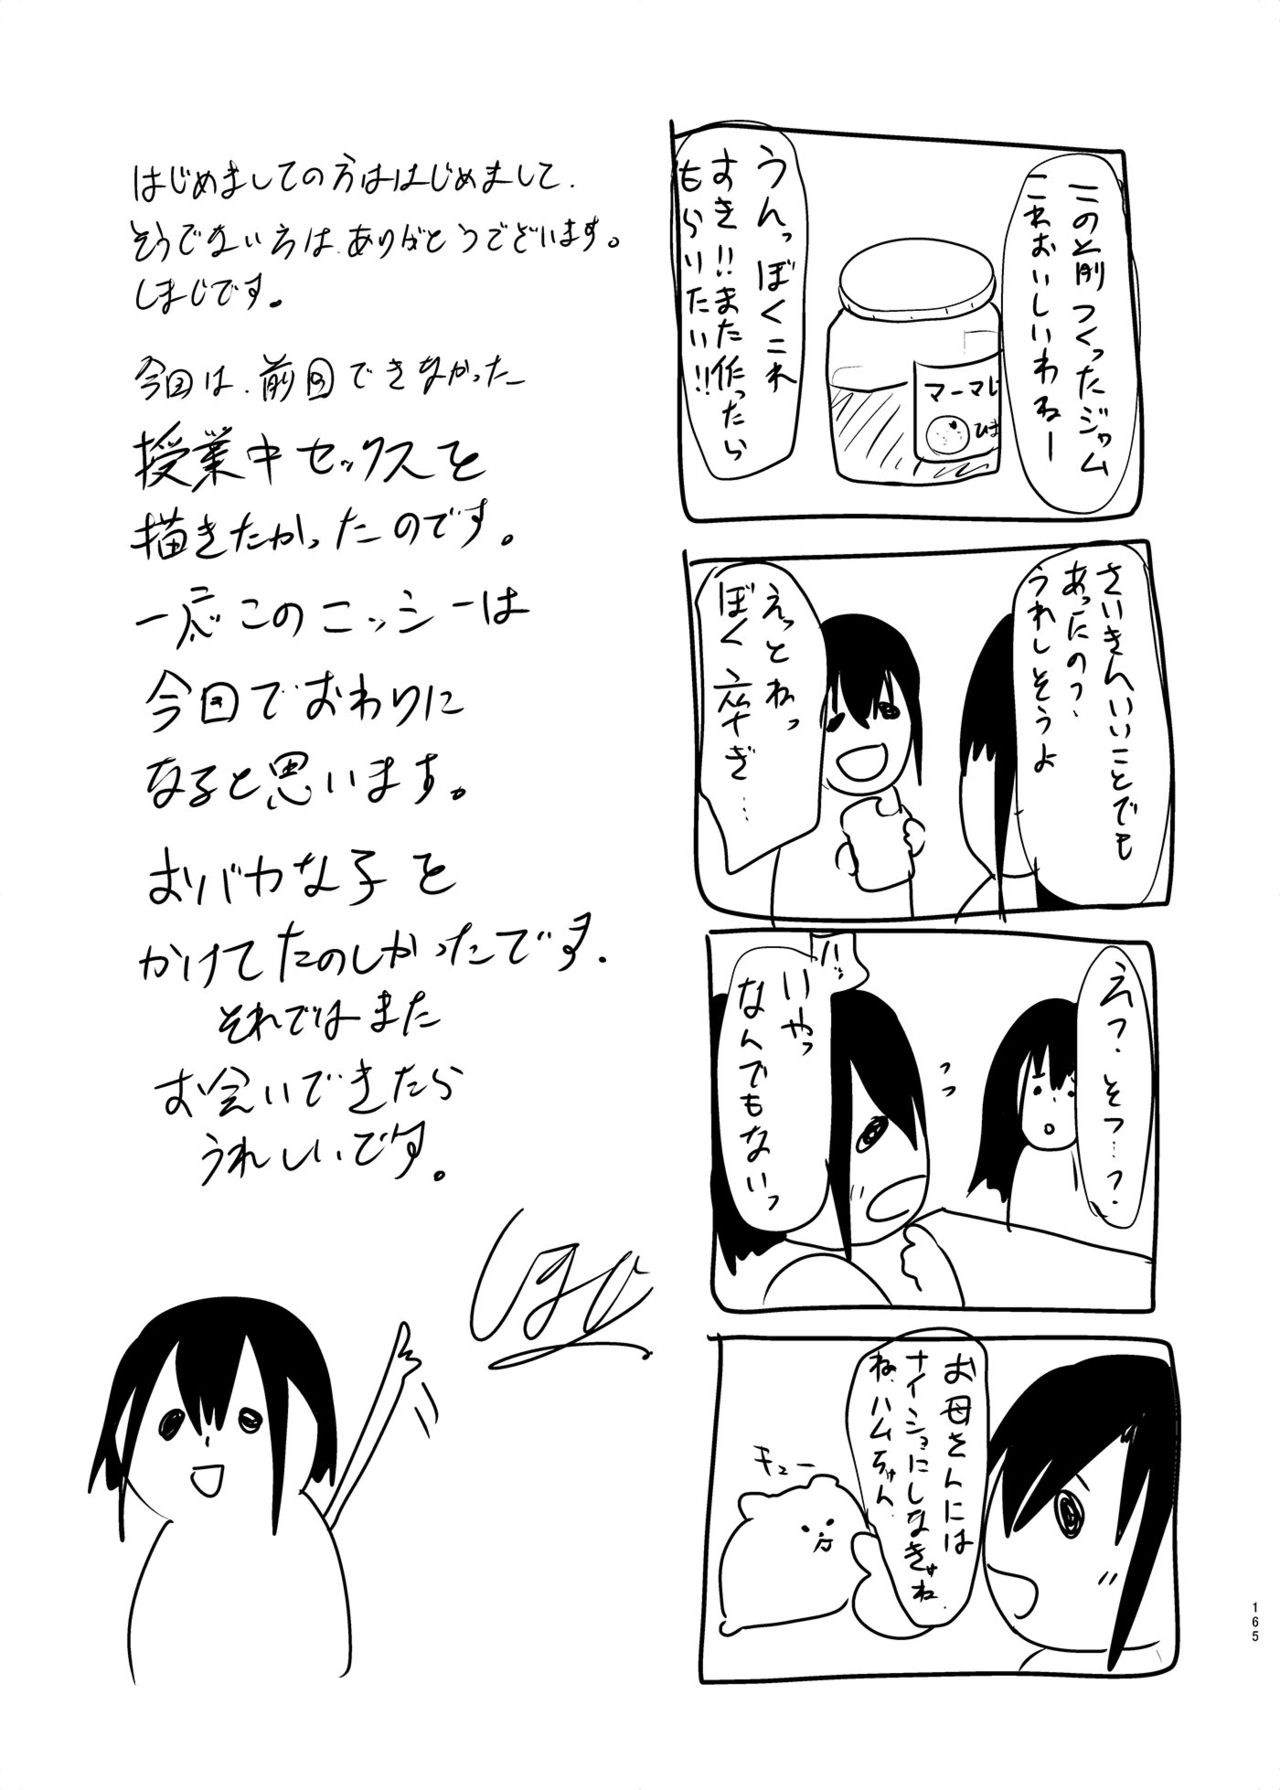 この前つくったジャム
これおいしいわねー
マーマレ
ひま
うんっぼくこれ
すき!!また作ったら
もらいたい!!
さいきんいいことでも
あったの?
うれしそうよ
えっとねっ
ぼく卒ぎ…
えっ、そつ…?
ハッ
いやっ
なんでもないっ
お母さんには
ナイショにしなきゃね
ね、ハムちゃん
キュー
はじめましての方ははじめまして、
そうでない方は、ありがとうでざいます。
しまじです。
今回は、前回できなかった
授業中セックスを
描きたかったのです。
一応このニッシーは
今回でおわりに
なると思います。
おバカな子を
かけてたのしかったです。
それではまた
お会いできたら
うれしいです。
しまじ
165